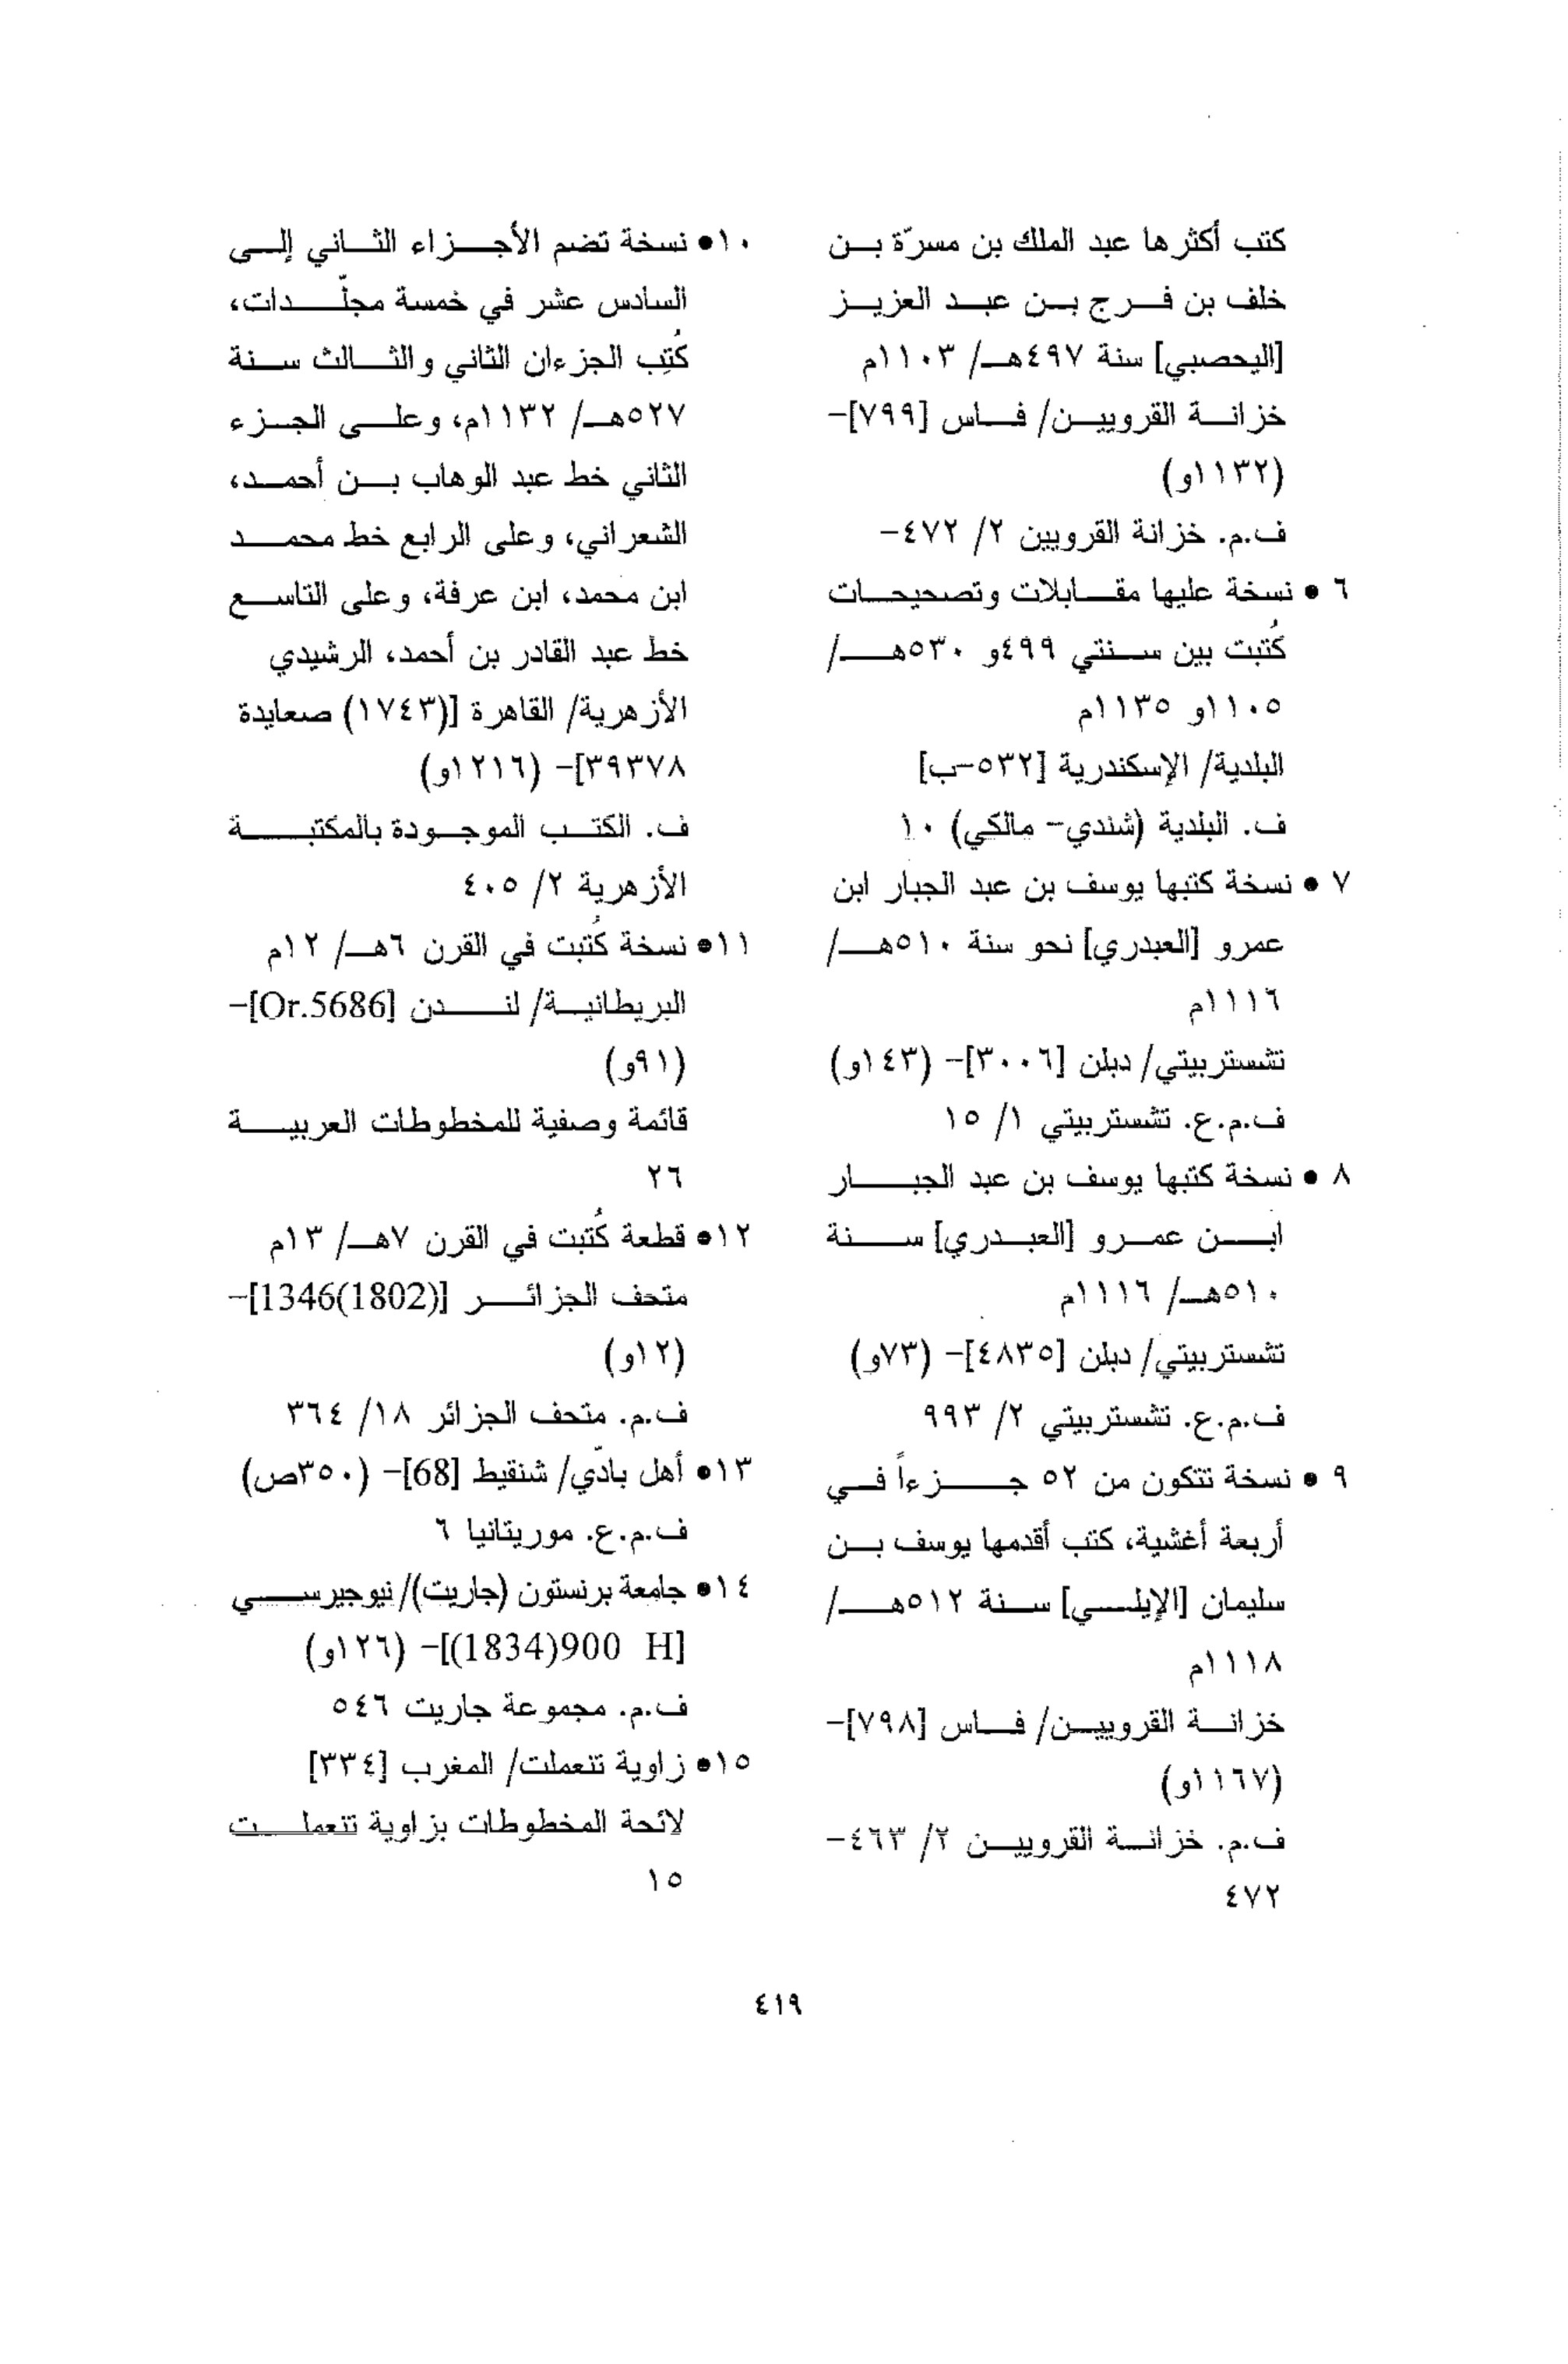 كتب أكثرها عبد الملك بن مسرّة بن
خلف بن فرج بن عبد العزيز
[اليحصبي] سنة ٤٩٧هـ/ ١١٠٣م
خزانة القرويين/ فاس [٧٩٩]-
(١١٣٢و)
ف.م. خزانة القرويين ٢/ ٤٧٢-
٦ • نسخة عليها مقابلات وتصحيحات
كُتبت بين سنتي ٤٩٩و ٥٣٠هـ/
١١٠٥و ١١٣٥م
البلدية/ الإسكندرية [٥٣٢-ب]
ف. البلدية (شندي- مالكي) ١٠
٧ • نسخة كتبها يوسف بن عبد الجبار ابن
عمرو [العبدري] نحو سنة ٥١٠هـ/
١١١٦م
تشستربيتي/ دبلن [٣٠٠٦]- (١٤٣و)
ف.م.ع. تشستربيتي ١/ ١٥
٨ • نسخة كتبها يوسف بن عبد الجبار
ابن عمرو [العبدري] سنة
٥١٠هـ/ ١١١٦م
تشستربيتي/ دبلن [٤٨٣٥]- (٧٣و)
ف.م.ع. تشستربيتي ٢/ ٩٩٣
٩ • نسخة تتكون من ٥٢ جزءاً في
أربعة أغشية، كتب أقدمها يوسف بن
سليمان [الإيلي] سنة ٥١٢هـ/
١١١٨م
خزانة القرويين/ فاس [٧٩٨]-
(١١٦٧و)
ف.م. خزانة القرويين ٢/ ٤٦٣-
٤٧٢
١٠• نسخة تضم الأجزاء الثاني إلى
السادس عشر في خمسة مجلّدات،
كُتِب الجزءان الثاني والثالث سنة
٥٢٧هـ/ ١١٣٢م، وعلى الجزء
الثاني خط عبد الوهاب بن أحمد،
الشعراني، وعلى الرابع خط محمد
ابن محمد، ابن عرفة، وعلى التاسع
خط عبد القادر بن أحمد، الرشيدي
الأزهرية/ القاهرة [(١٧٤٣) صعايدة
٣٩٣٧٨]- (١٢١٦و)
ف. الكتب الموجودة بالمكتبة
الأزهرية ٢/ ٤٠٥
١١• نسخة كُتبت في القرن ٦هـ/ ١٢م
البريطانية/ لندن [Or.5686]-
(٩١و)
قائمة وصفية للمخطوطات العربية
٢٦
١٢• قطعة كُتبت في القرن ٧هـ/ ١٣م
متحف الجزائر [1346(1802)]-
(١٢و)
ف.م. متحف الجزائر ١٨/ ٣٦٤
١٣• أهل بادّي/ شنقيط [68]- (٣٥٠ص)
ف.م.ع. موريتانيا ٦
١٤• جامعة برنستون (جاريت)/ نيوجيرسي
[(1834)900 H]- (١٢٦و)
ف.م. مجموعة جاريت ٥٤٦
١٥• زاوية تنعملت/ المغرب [٣٣٤]
لائحة المخطوطات بزاوية تنعملت
١٥
٤١٩